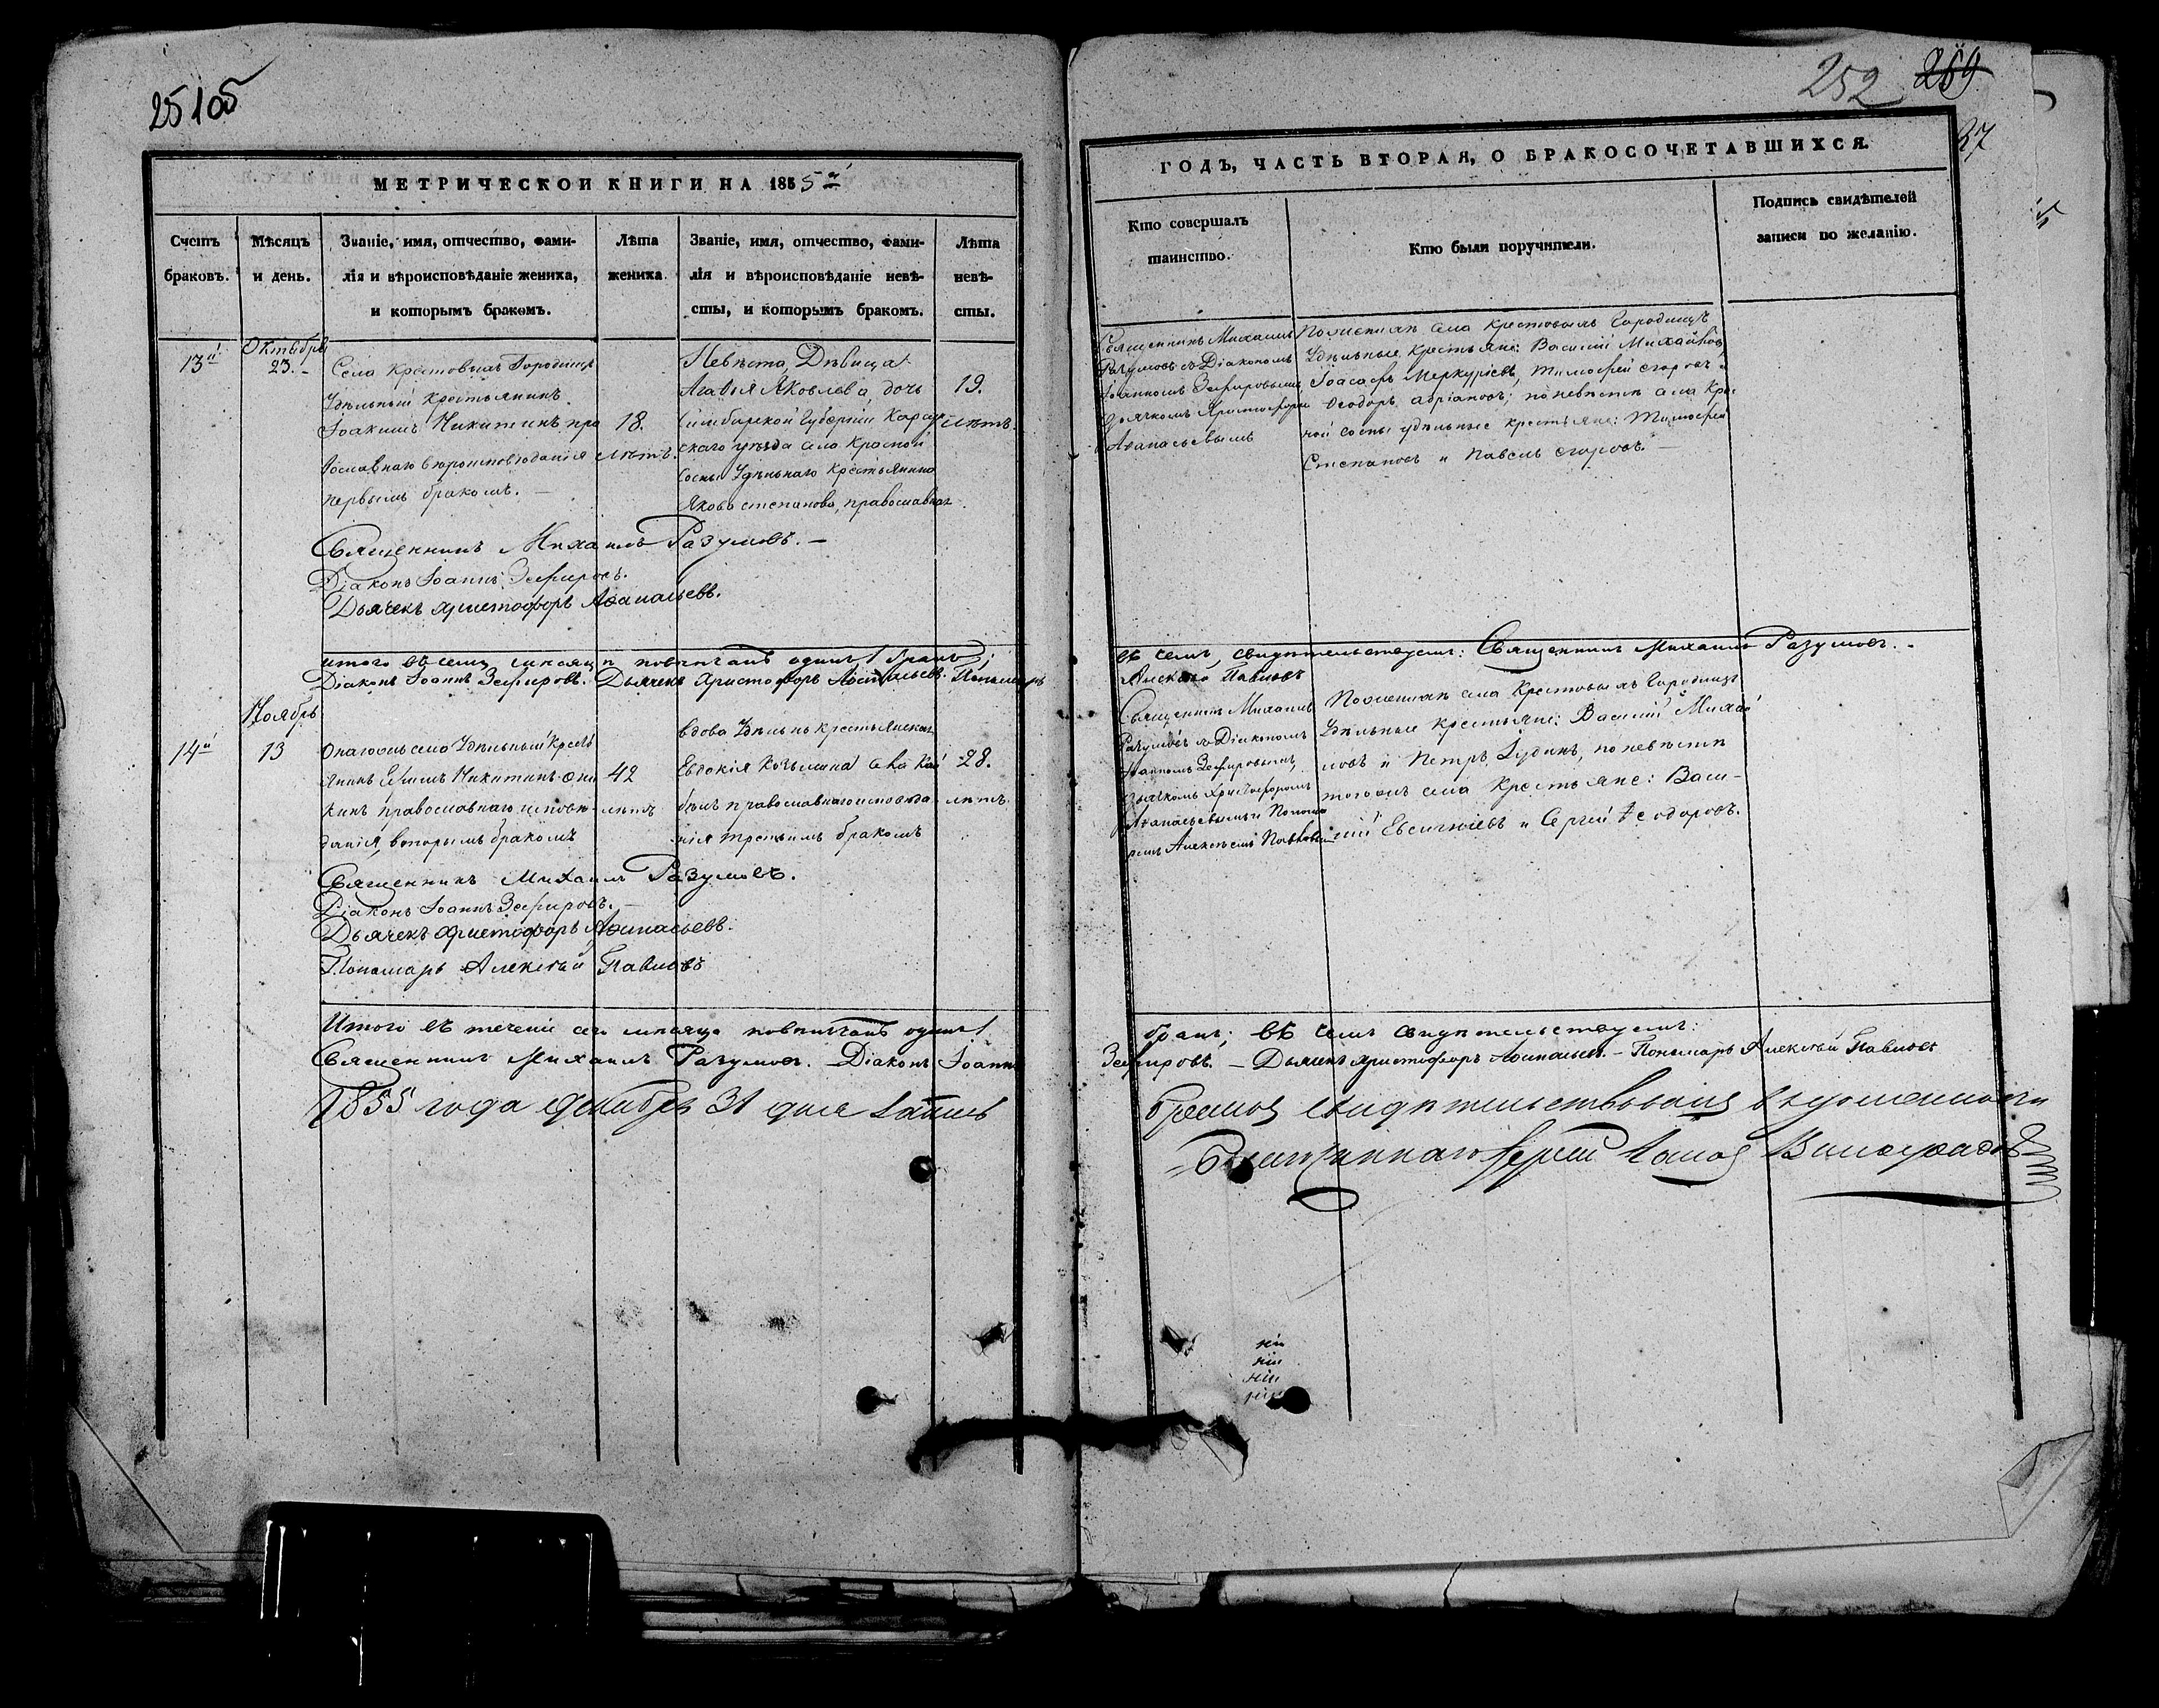 251об
МЕТРИЧЕСКОЙ КНИГИ НА 1855й
Счетъ браковъ.
Мѣсяцъ и день.
Званіе, имя, отчество, фами-
лія и вѣроисповѣданіе жениха,
и которымъ бракомъ.
Лѣта жениха.
Званіе, имя, отчество, фами-
лія и вѣроисповѣданіе невѣ-
сты, и которымъ бракомъ.
Лѣта невѣ-
сты.
13й
Октябрь
23.
Села Крестовыхъ Городищъ
Удѣльный крестьянинъ
Іоакимъ Никитинъ пра
вославнаго вѣроисповѣданія
первымъ бракомъ. —
18.
лѣтъ.
Невѣста, Дѣвица
Агаѳія Яковлева, дочь
Симбирской Губерніи Карсун
скаго уѣзда села Красной
Сосны Удѣльнаго Крестьянина
Якова Степанова, православная.
19.
лѣтъ.
Священникъ Михаилъ Разумовъ. —
Діаконъ Іоаннъ Зефировъ.
Дьячекъ Христофоръ Аѳанасьевъ.
итого въ семъ мѣсяцѣ повѣнчанъ одинъ 1 бракъ;
Діаконъ Іоаннъ Зефировъ. Дьячекъ Христофоръ Аѳанасьевъ. Пономарь
14й
Ноябрь
13
Онагожъ села Удѣльный Кресть
янинъ Ефимъ Никитинъ
православнаго исповѣ-
данія, вторымъ бракомъ
42
лѣтъ
вдова Удѣльн крестьянская
Евдокія Козьмина
православнаго исповѣда
нія третьимъ бракомъ
28.
лѣтъ.
Священникъ Михаилъ Разумовъ.
Діаконъ Іоаннъ Зефировъ. —
Дьячекъ Христофоръ Аѳанасьевъ.
Пономарь Алексѣй Павловъ
Итого въ теченіи сего мѣсяца повѣнчанъ одинъ 1
Священникъ Михаилъ Разумовъ. Діаконъ Іоаннъ
1855 года Декабря 31 дня запись
252 269
37
ГОДЪ, ЧАСТЬ ВТОРАЯ, О БРАКОСОЧЕТАВШИХСЯ.
Кто совершалъ
таинство.
Кто были поручители.
Подпись свидѣтелей
записи по желанію.
Священникъ Михаилъ
Разумовъ съ Діакономъ
Іоанномъ Зефировымъ
Дьячкомъ Христофоромъ
Аѳанасьевымъ
По женихѣ села Крестовыхъ Городищъ
Удѣльные Крестьяне: Василій Михайловъ,
Іоасафъ Меркурьевъ, Тимофей Егоровъ и
Ѳеодоръ Адріановъ; по невѣстѣ села Крас
ной Сосны удѣльные крестьяне: Тимофей
Степановъ и Павелъ Егоровъ. —
въ чемъ свидѣтельствуемъ: Священникъ Михаилъ Разумовъ. -
Алексѣй Павловъ
Священникъ Михаилъ
Разумовъ съ Діакономъ
Іоанномъ Зефировымъ,
Дьячкомъ Христофоромъ
Аѳанасьевымъ и Понома
ремъ Алексѣемъ Павловымъ
По женихѣ села Крестовыхъ Городищъ
Удѣльные крестьяне: Василій Михай
ловъ и Петръ Іудинъ, по невѣстѣ
тогожъ села Крестьяне: Васи-
лій Евсигнѣевъ и Сергѣй Ѳеодоровъ.
бракъ; въ чемъ свидѣтельствуемъ:
Зефировъ. — Дьячекъ Христофоръ Аѳанасьевъ. — Пономарь Алексѣй Павловъ
браковъ свидѣтельствовалъ
Виноградовъ